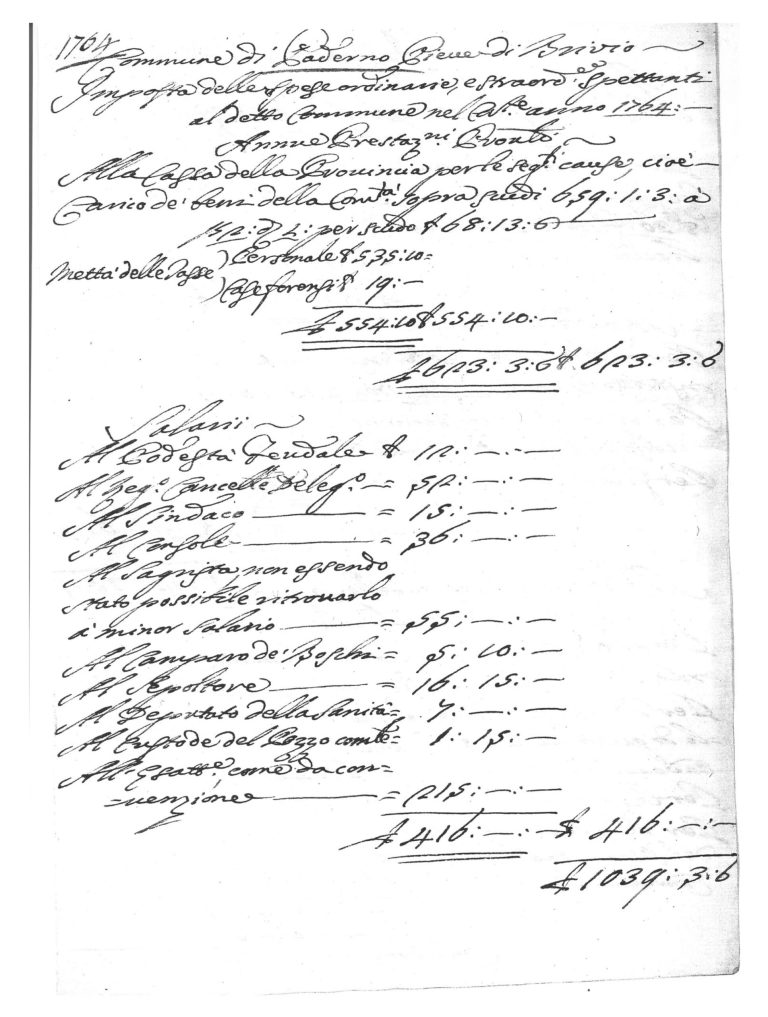 1764
Commune di Caderno Pieve di Brivio
Imposta delle spese ordinarie, e straord.e Spettanti
al detto Commune nel anno 1764:—
Annue Prestaz.ni Prov.li
Alla Cassa della Provincia per le seg.ti cause, cioè
Carico de' beni della Com.tà sopra scudi 659: 1: 3: à
per scudo £ 68: 13: 6
Mettà delle Tasse ) Personale £ 535: 10=
) Case forensi £ 19:—
£ 554: 10 £ 554: 10:—
£ 623: 3: 6 £ 623: 3: 6
Salarii
Al Podestà Feudale £ 12:—:—
Al Reg.o Cancell.e Deleg.o = 52:—:—
Al Sindaco = 15:—:—
Al Console = 36:—:—
Al Sagrista, non essendo
stato possibile ritrovarlo
à minor salario = 55:—:—
Al Camparo de' Boschi = 5: 10:—
Al Sepoltore = 16: 15:—
Al Deputato della Sanità = 7:—:—
Al Custode del Pozzo = 1: 15:—
All' Esatt.e come da con=
=venzione = 215:—:—
£ 416:—:— £ 416:—:—
£ 1039: 3: 6